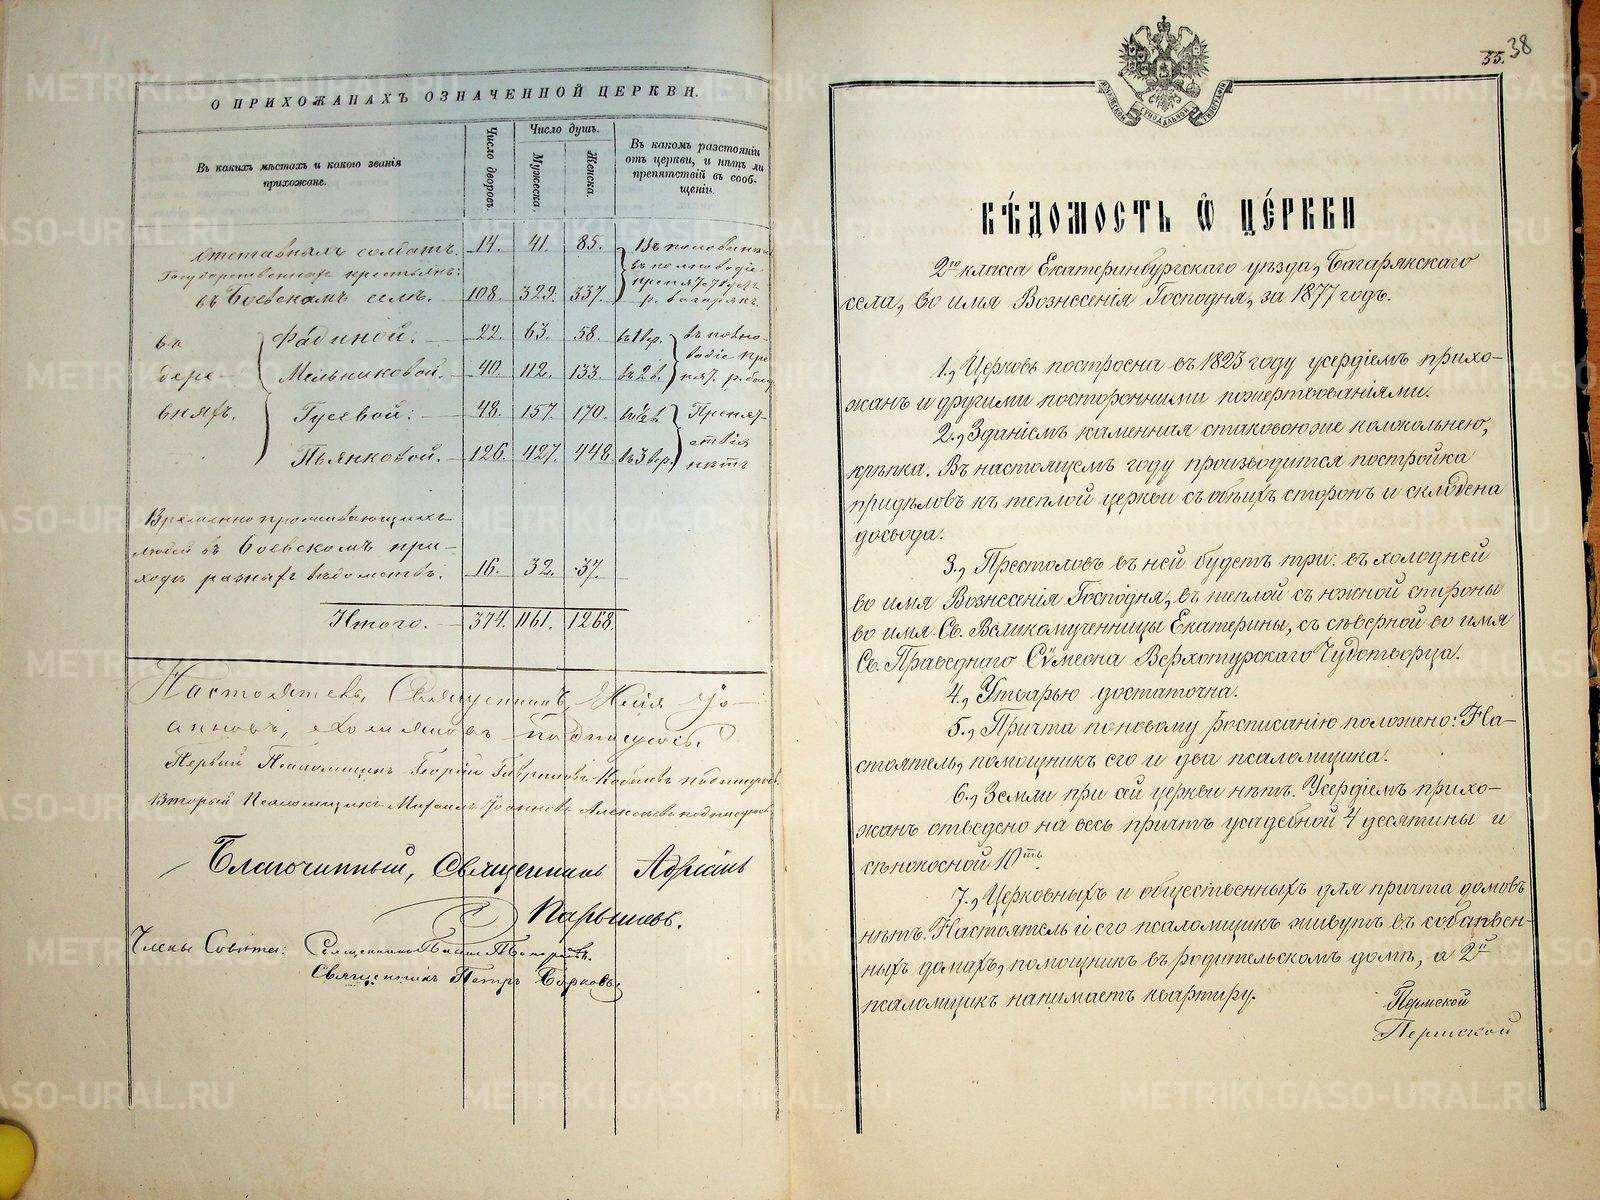 О ПРИХОЖАНАХЪ ОЗНАЧЕННОЙ ЦЕРКВИ.
Въ какихъ мѣстахъ и какого званія прихожане.
Число дворовъ.
Число душъ.
Мужеска.
Женска.
Въ какомъ разстояніи
отъ церкви, и нѣтъ ли
препятствій въ сооб-
щеніи.
Отставныхъ солдатъ. 14. 41. 85. Въ половинѣ
Государственныхъ крестьянъ: въ полноводіе
въ Боевскомъ селѣ. 108. 329. 337. р. Богарякъ
въ Фадиной. 22. 63. 58. въ 1 вер. въ полно-
дере- Мельниковой. 40. 112. 133. въ 2 в. водіе пре
вняхъ. Гусевой: 48. 157. 170. Препят-
Пьянковой. 126. 427. 448. въ 3 вер. ствія нѣтъ
Временно проживающихъ
людей въ Боевскомъ при-
ходѣ разныхъ вѣдомствъ. 16. 32. 37.
Итого. 374. 1161. 1268.
Настоятель, Священникъ Илія Іо-
анновъ, подписуюсь.
Первый Псаломщикъ Георгій Гавриловъ
Вторый Псаломщикъ Михаилъ Іоанновъ Алексѣевъ подписуюсь
Благочинный, Священникъ Адріанъ
Парышевъ.
Члены Совѣта: Священникъ
Священникъ Петръ
35. 38
МОСКОВСКОЙ СУНОДАЛЬНОЙ ТИПОГРАФІИ
ВѢДОМОСТЬ Ѡ ЦЕ́РКВИ
2го класса Екатеринбургскаго уѣзда, Багарякскаго
села, во имя Вознесенія Господня, за 1877 годъ.
1., Церковь построена въ 1823 году усердіемъ прихо-
жанъ и другими посторонними пожертвованіями.
2., Зданіемъ каменная стаковою же колокольнею,
крѣпка. Въ настоящемъ году производится постройка
придѣловъ къ теплой церкви съ обѣихъ сторонъ и складена
досвода.
3., Престоловъ въ ней будетъ три: въ холодней
во имя Вознесенія Господня, въ теплой съ южной стороны
во имя Св. Великомученницы Екатерины, съ сѣверной во имя
Св. Праведнаго Сѵмеона Верхотурскаго Чудотворца.
4., Утварью достаточна.
5., Причта по новому росписанію положено: На-
стоятель, помощникъ его и два псаломщика.
6., Земли при сей церкви нѣтъ. Усердіемъ прихо-
жанъ отведено на весь причтъ усадебной 4 десятины и
сѣнокосной 10ть
7., Церковныхъ и общественныхъ для причта домовъ
нѣтъ. Настоятель и его псаломщикъ живутъ въ собствен-
ныхъ домахъ, помощникъ въ родительскомъ домѣ, а 2й
псаломщикъ нанимаетъ квартиру.
Пермской
Пермской
METRIKI.GASO-URAL.RU